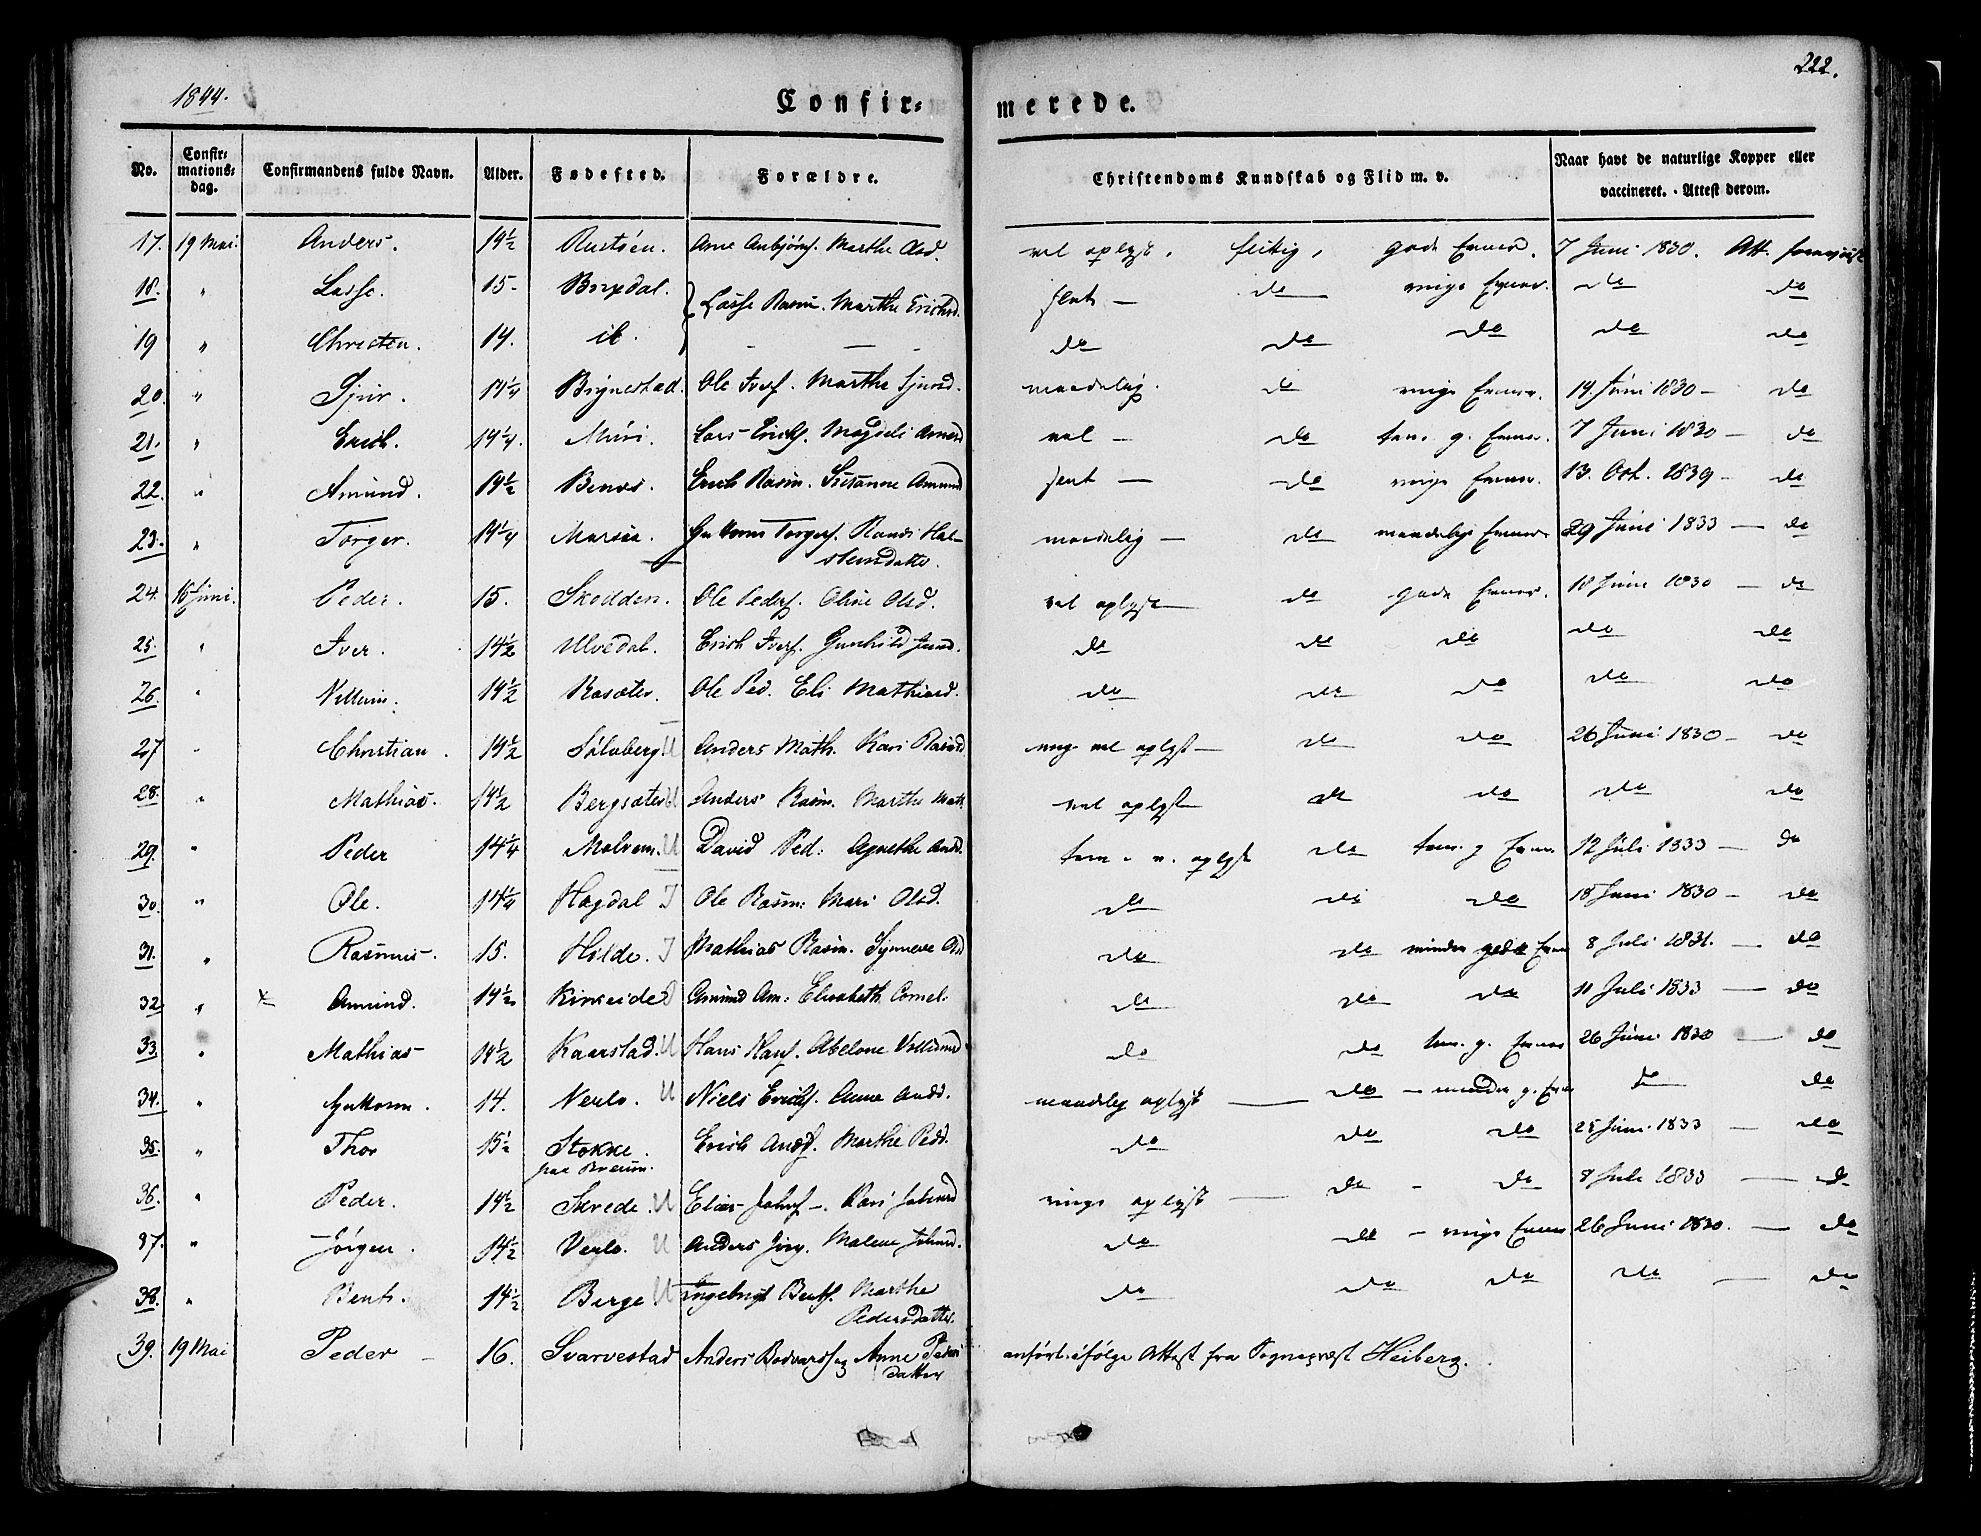 222.
1844.
Confir= merede.
No. Confir=mations=dag. Confirmandens fulde Navn. Alder. Fødested. Forældre. Christendoms Kundskab og Flid m. v. Naar havt de naturlige Kopper eller vaccineret. - Attest derom.
17. 19 Mai. Anders. 14½ Rustøen. Arne Anbjörns. Marthe Olsd. vel oplyst, flittig, gode Evner. 7 Juni 1830. Att. foreviist
18. " Lasse. 15. Brixdal. Lasse Rasm. Marthe Erichsd. slet — do ringe Evner. do do
19 " Christen. 14. ib. — — — do do do do do
20. " Sjur. 14¼ Brignestad. Ole Ivers. Marthe Sjursd. maadelig. do ringe Evner. 14. Juni 1830 — do
21. " Erich. 14¼. Muri. Lars Erichs. Magdeli Arnesd vel — do tem. g. Evner. 7 Juni 1830 — do
22. " Amund. 14½ Benos. Erich Rasm. Susanne Amund slet — do ringe Evner. 13. Oct. 1839 — do
23. " Torger. 14¼ Marsæa. Guttorm Torgers. Randi Hal-
steindatter.
maadelig — do maadelige Evner. 29 Juni 1833 — do
24. 16 Juni. Peder. 15. Skodden. Ole Peders. Oline Olsd. vel oplyst — do gode Evner. 18 Juni 1830 — do
25. " Iver. 14½ Ulvedal. Erich Ivers. Gunhild Jensd. do do do do do
26. " Villum. 14½ Rasæter. Ole Ped. Eli Mathiasd. do do do do do
27 " Christian. 14½ Sølvberg U Anders Math. Kari Rasmd meg. vel oplyst — do do 26 Juni 1830 — do
28. " Mathias. 14½ Bergsæter U Anders Rasm. Marthe Math. vel oplyst do do do do
29. " Peder 14¼ Molvem. U David Ped: Agnethe Andd. tem. v. oplyst do tem. g Evner 12 Juli 1833 — do
30. " Ole. 14¼ Hagdal I Ole Rasm: Mari Olsd. do do do 18 Juni 1830 — do
31. " Rasmus 15. Hilde. I Mathias Rasm. Synneve Olsd do do mindre gode Evner 8 Juli 1831. — do
32. " x Amund. 14½ Kirkeide Amund Am: Elisabeth Cornel. do do do 11 Juli 1833 — do
33. " Mathias 14½ Kaarstad. U Hans Hans. Abelone Villumd. do do tem. g. Evner 26 Juni 1830 — do
34. " Guttorm. 14. Verlo. U Niels Erichs. Anne Andd. maadelig oplyst — do — mindre g. Evner do do
35. " Thor 15½ Stokke.
paa Breum.
Erich Ands. Marthe Pedd. do do do 25 Juni 1833 — do
36. " Peder. 14½ Skrede. U Elias Johns. Kari Johnsd ringe oplyst — do — do 8 Juli 1833 — do
37. " Jørgen. 14½ Verlo. U Anders Jörg. Malene Johnsd. do do — ringe Evner 26 Juni 1830. — do
38. " Bent. 14½ Berge. U Ingebrigt Bents. Marthe
Pedersdatter.
do do do do — do
39. 19 Mai Peder 16. Svarvestad Anders Bodvards og Anne Peders
datter
anført ifølge Attest fra Sognepræst Heiberg.